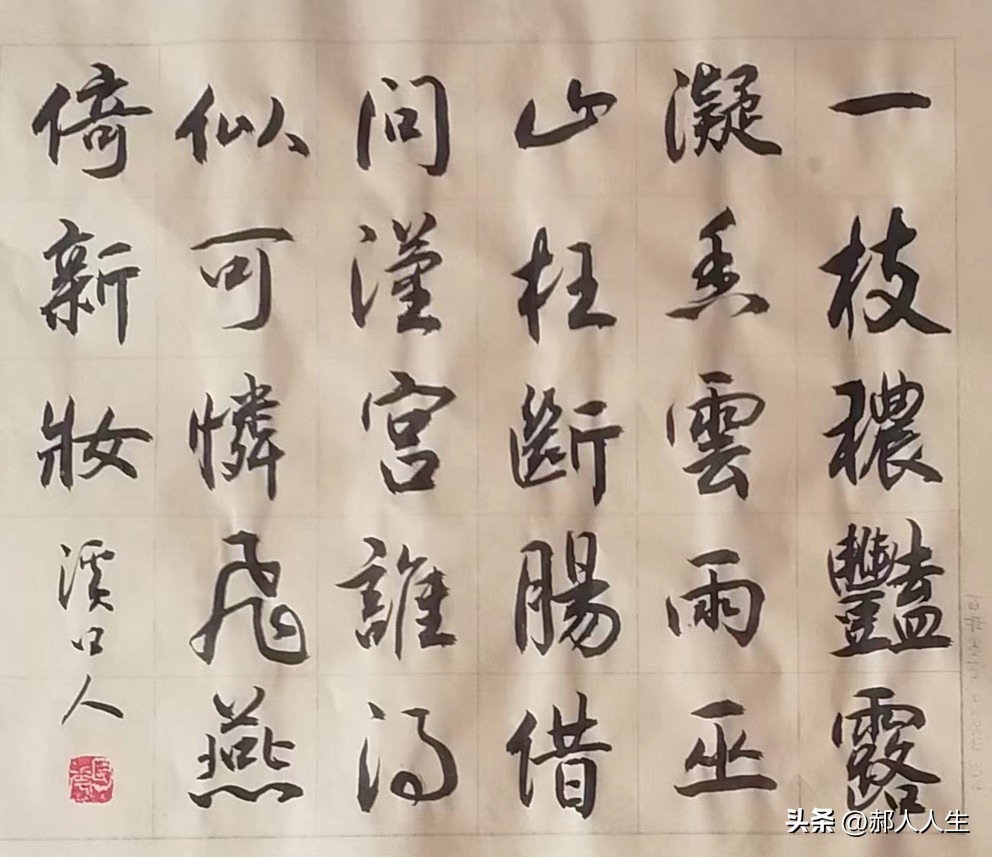 一枝穠豔露
凝香雲雨巫
山枉斷腸借
問漢宮誰得
似可憐飛燕
倚新妝
溪口人
头条 @郝人人生